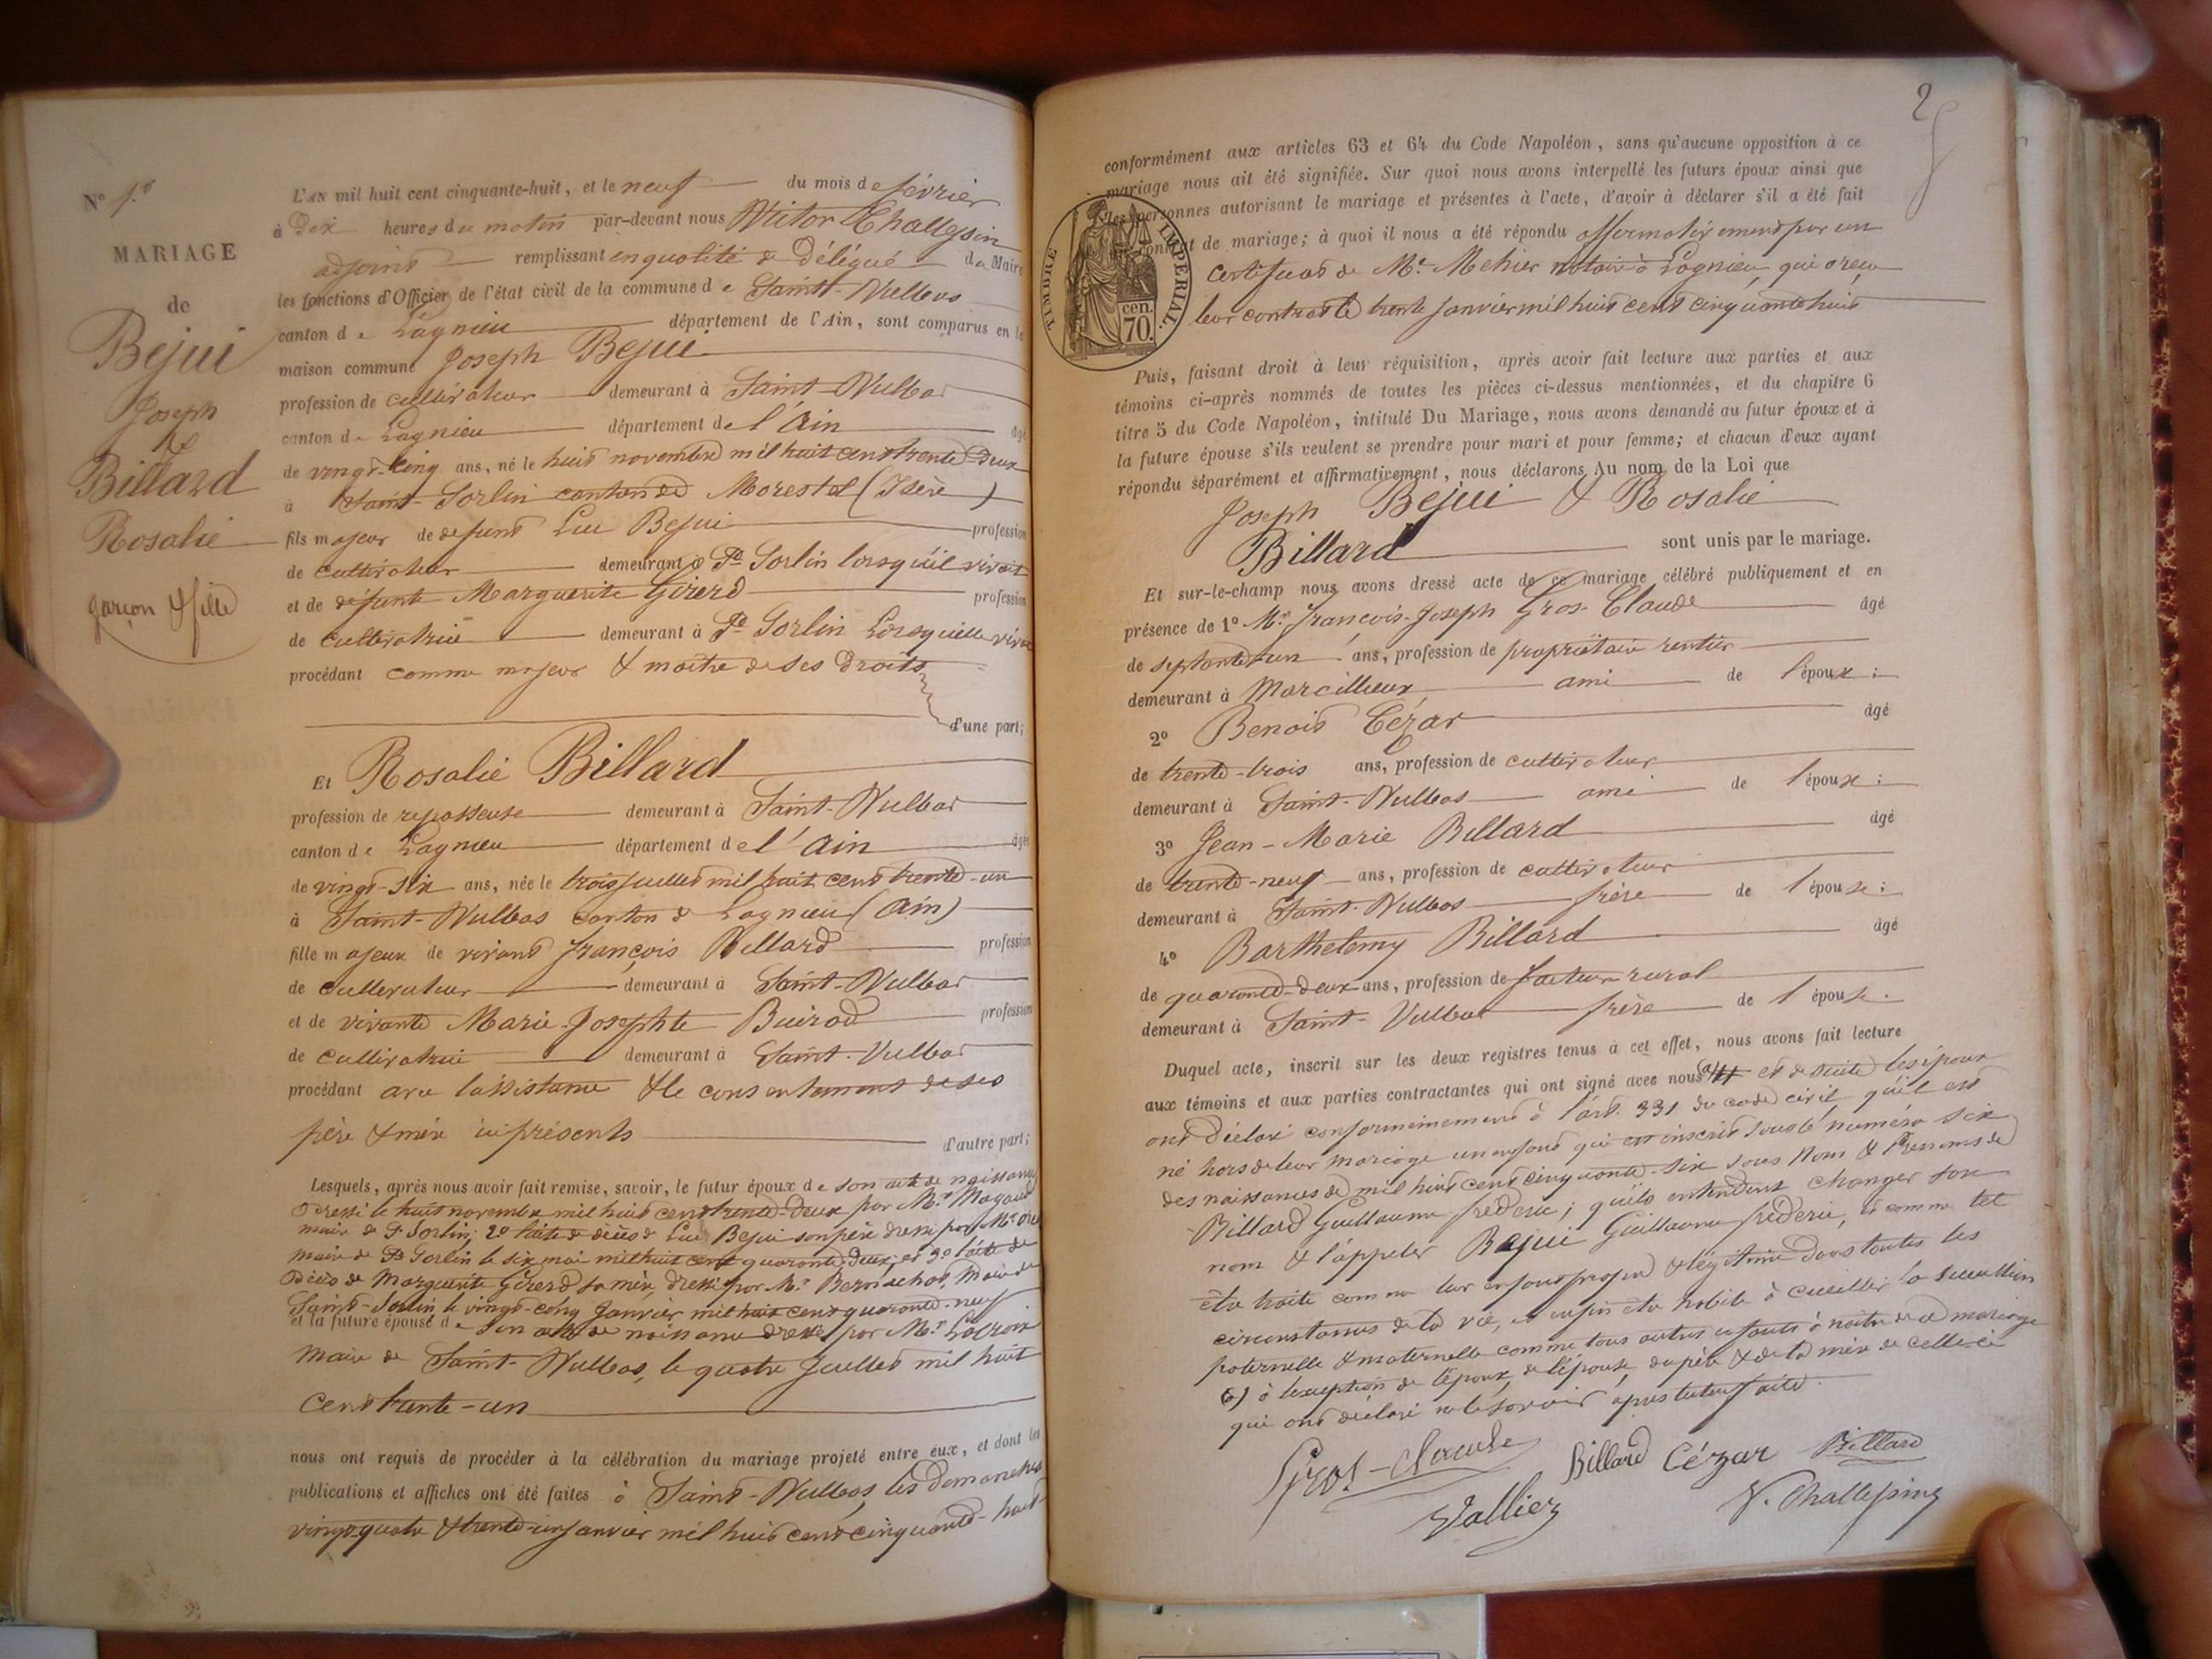 N° 1.er
MARIAGE
de
Bejui
Joseph
&
Billard
Rosalie
garçon & fille
L'AN mil huit cent cinquante-huit, et le neuf du mois de février
à dix heures du matin par-devant nous Victor Challepin
adjoint remplissant en qualité de Délégué du Maire
les fonctions d'Officier de l'état civil de la commune de Saint-Vulbas
canton de Lagnieu département de l'Ain, sont comparus en la
maison commune Joseph Bejui
profession de cultivateur demeurant à Saint-Vulbas
canton de Lagnieu département de l'Ain âgé
de vingt-cinq ans, né le huit novembre mil huit cent trente-deux
à Saint-Sorlin canton de Morestel (Isère)
fils majeur de defunt Luc Bejui profession
de cultivateur demeurant à St Sorlin lorsqu'il vivait
et de défunte Marguerite Girerd profession
de cultivatrice demeurant à St Sorlin Lorsquelle vivait
procédant comme majeur & maitre de ses droits
d'une part;
Et Rosalie Billard
profession de repasseuse demeurant à Saint-Vulbas
canton de Lagnieu département de l'Ain âgée
de vingt-six ans, née le trois juillet mil huit cent trente-un
à Saint-Vulbas canton de Lagnieu (Ain)
fille majeure de vivant françois Billard profession
de cultivateur demeurant à Saint-Vulbas
et de vivante Marie-Josephte Buirod profession
de cultivatrice demeurant à Saint-Vulbas
procédant avec l'assistance & le consentement de ses
père & mère ici présents d'autre part;
Lesquels, après nous avoir fait remise, savoir, le futur époux de son acte de naissance
dressé le huit novembre mil huit cent trente-deux par Mr
maire de St Sorlin; 2° l'acte de décès de Luc Bejui son père dressé par Mr
maire de St Sorlin le six mai mil huit cent quarante-deux; et 3° l'acte de
décès de Marguerite Girerd sa mère, dressé par Mr Maire de
Saint-Sorlin le vingt-cinq Janvier mil huit cent quarante-neuf
et la future épouse de son acte de naissance dressé par Mr Lacroix
Maire de Saint-Vulbas, le quatre Juillet mil huit
cent trente-un
nous ont requis de procéder à la célébration du mariage projeté entre eux, et dont les
publications et affiches ont été faites à Saint-Vulbas, les dimanches
vingt-quatre & trente-un janvier mil huit cent cinquante-huit
2
conformément aux articles 63 et 64 du Code Napoléon, sans qu'aucune opposition à ce
mariage nous ait été signifiée. Sur quoi nous avons interpellé les futurs époux ainsi que
les personnes autorisant le mariage et présentes à l'acte, d'avoir à déclarer s'il a été fait
un contrat de mariage; à quoi il nous a été répondu affirmativement par un
certificat de Me Mehier notaire à Lagnieu, qui a reçu
leur contrat le trente Janvier mil huit cent cinquante huit
TIMBRE IMPERIAL.
cen.
70.
Puis, faisant droit à leur réquisition, après avoir fait lecture aux parties et aux
témoins ci-après nommés de toutes les pièces ci-dessus mentionnées, et du chapitre 6
titre 5 du Code Napoléon, intitulé Du Mariage, nous avons demandé au futur époux et à
la future épouse s'ils veulent se prendre pour mari et pour femme; et chacun d'eux ayant
répondu séparément et affirmativement, nous déclarons Au nom de la Loi que
Joseph Bejui & Rosalie
Billard sont unis par le mariage.
Et sur-le-champ nous avons dressé acte de ce mariage célébré publiquement et en
présence de 1° Mr françois-Joseph Gros-Claude âgé
de septante-un ans, profession de propriétaire rentier
demeurant à Marcillieux ami de l'époux;
2° Benoit Cézar âgé
de trente-trois ans, profession de cultivateur
demeurant à Saint-Vulbas ami de l'époux;
3° Jean-Marie Billard âgé
de trente-neuf ans, profession de cultivateur
demeurant à Saint-Vulbas frère de l'épouse;
4° Barthelemy Billard âgé
de quarante-deux ans, profession de facteur rural
demeurant à Saint-Vulbas frère de l'épouse.
Duquel acte, inscrit sur les deux registres tenus à cet effet, nous avons fait lecture
aux témoins et aux parties contractantes qui ont signé avec nous (a) et de suite les époux
ont déclaré conformément à l'art. 331 du code civil qu'il est
né hors de leur mariage un enfant qui est inscrit sous le numéro six
des naissances de mil huit cent cinquante-six sous Nom & Prénoms de
Billard Guillaume frederic; qu'ils entendent changer son
nom & l'appeler Bejui Guillaume frederic, et comme tel
être traité comme leur enfant propre & légitime dans toutes les
circonstances de la vie, et enfin être habile à cueillir la succession
paternelle & maternelle comme tous autres enfants à naitre de ce mariage
(a) à l'exception de l'époux, de l'épouse, du père & de la mère de celle-ci
qui ont déclaré ne le savoir après lecture faite.
Gros-Claude Billard Cézar Billard
Vallier V. Challepin